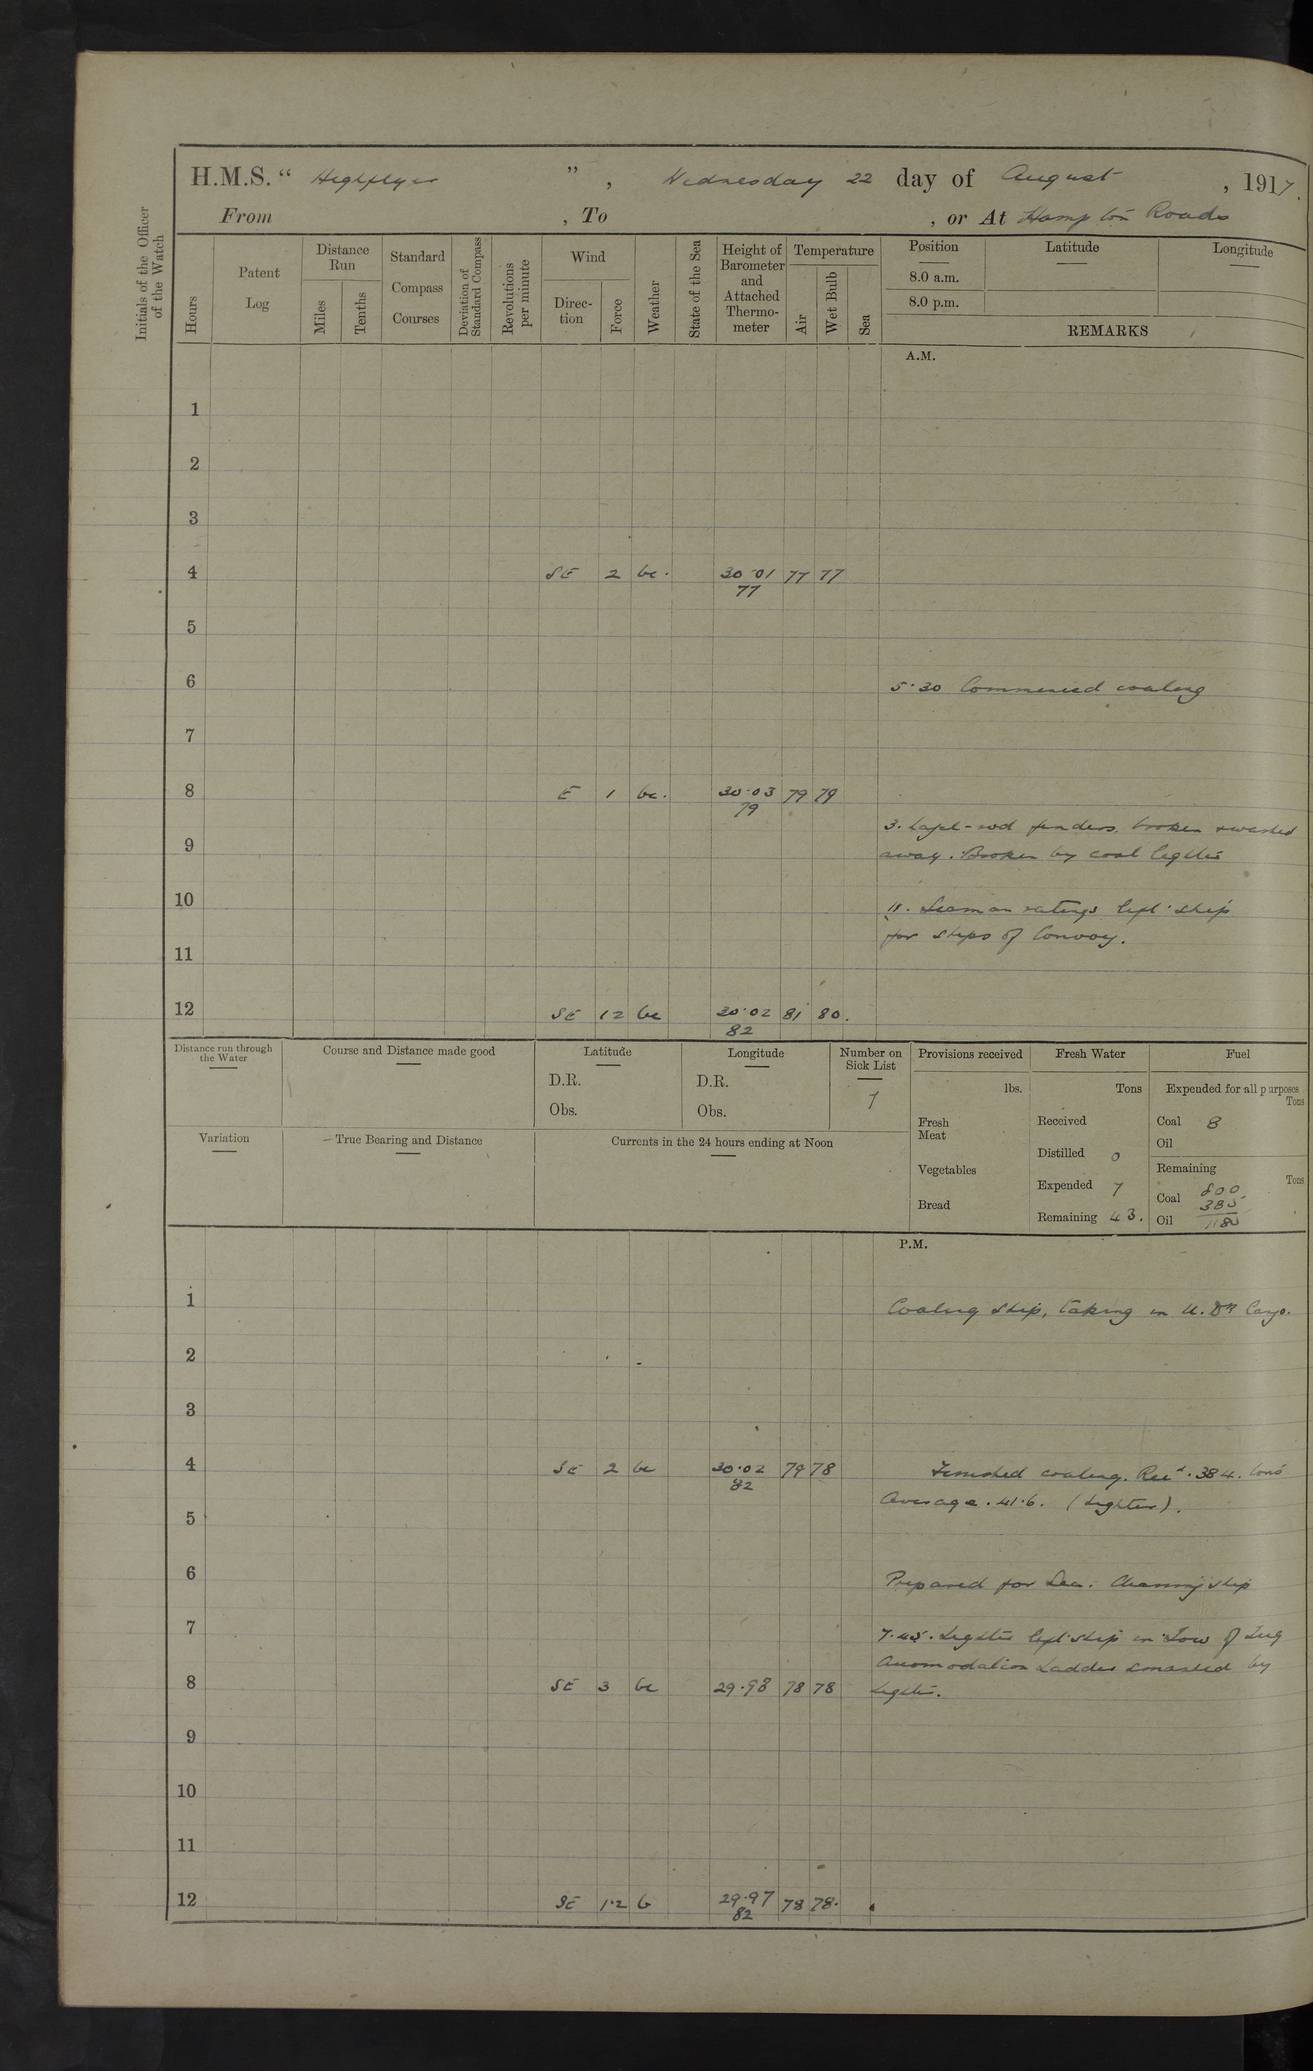 H.M.S. “ Highflyer ” , Wednesday 22 day of August , 1917.
From , To , or At Hampton Roads
Initials of the Officer of the Watch
Hours
Patent Log
Distance Run
Miles
Tenths
Standard Compass Courses
Deviation of Standard Compass
Revolutions per minute
Wind
Direc-tion
Force
Weather
State of the Sea
Height of Barometer and Attached Thermo-meter
Temperature
Air
Wet Bulb
Sea
Position Latitude Longitude
8.0 a.m.
8.0 p.m.
REMARKS
A.M.
1
2
3
4 SE 2 bc. 30.01 77 77
77
5
6
5.30 Commenced coaling
7
8 E 1 bc. 30.03 79 79
79
3. Hazel-rod fenders broken & washed
9
away. Broken by coal lighter
10
11. Seaman ratings left ship
for ships of Convoy.
11
12 SE 12 bc 30.02 81 80.
82
Distance run through the Water
Course and Distance made good
Latitude
D.R.
Obs.
Longitude
D.R.
Obs.
Number on Sick List
7
Provisions received
lbs.
Fresh Meat
Vegetables
Bread
Fresh Water
Tons
Received
Distilled 0
Expended 7
Remaining 43.
Fuel
Expended for all purposes
Tons
Coal 8
Oil
Remaining
Tons
Coal 800
385
Oil 1185
Variation
True Bearing and Distance
Currents in the 24 hours ending at Noon
P.M.
1
Coaling ship, taking in U. Dk Cargo.
2
3
4 SE 2 bc 30.02 79 78
82
Finished coaling. Recd. 384. tons
Average. 41.6. (Lighter).
5
6
Prepared for Sea. Cleaning ship
7
7.45. Lighter left ship in Tow of Tug
Acomodation Ladder smashed by
8 SE 3 bc 29.98 78 78
Lighter.
9
10
11
12 SE 1.2 b 29.97 78 78.
82